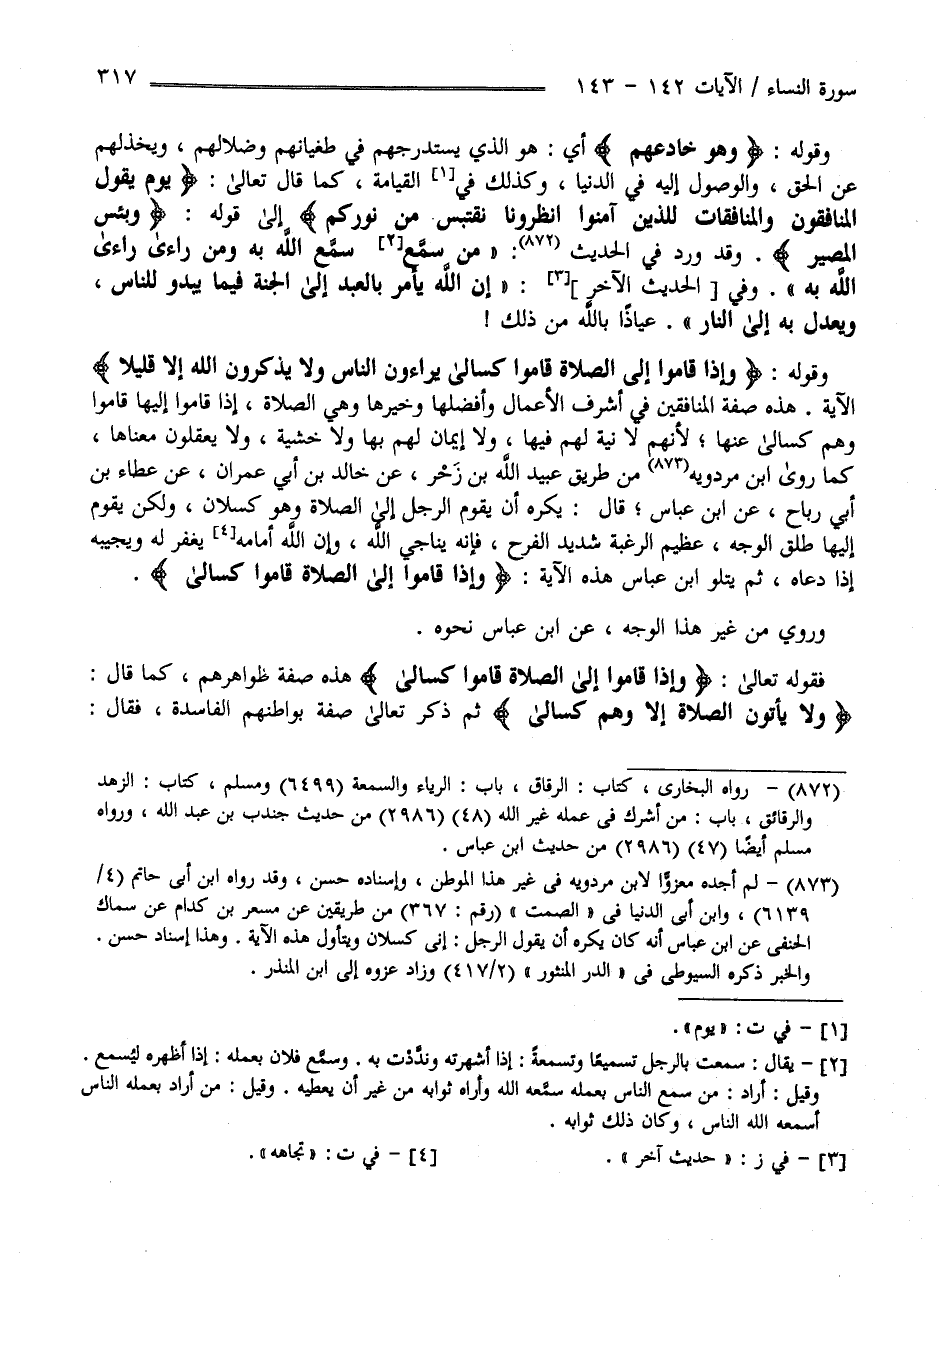 سورة النساء / الآيات ١٤٢ - ١٤٣ ٣١٧
وقوله : ﴿ وهو خادعهم ﴾ أي : هو الذي يستدرجهم في طغيانهم وضلالهم ، ويخذلهم
عن الحق ، والوصول إليه في الدنيا ، وكذلك في[١] القيامة ، كما قال تعالىٰ : ﴿ يوم يقول
المنافقون والمنافقات للذين آمنوا انظرونا نقتبس من نوركم ﴾ إلىٰ قوله : ﴿ وبئس
المصير ﴾ . وقد ورد في الحديث (٨٧٢): « من سمَّع[٢] سمَّع اللَّه به ومن راءىٰ راءىٰ
اللَّه به » . وفي [ الحديث الآخر ][٣] : « إن اللَّه يأمر بالعبد إلىٰ الجنة فيما يبدو للناس ،
ويعدل به إلىٰ النار » . عياذًا باللَّه من ذلك !
وقوله : ﴿ وإذا قاموا إلى الصلاة قاموا كسالىٰ يراءون الناس ولا يذكرون الله إلا قليلا ﴾
الآية . هذه صفة المنافقين في أشرف الأعمال وأفضلها وخيرها وهي الصلاة ، إذا قاموا إليها قاموا
وهم كسالىٰ عنها ؛ لأنهم لا نية لهم فيها ، ولا إيمان لهم بها ولا خشية ، ولا يعقلون معناها ،
كما روىٰ ابن مردويه(٨٧٣) من طريق عبيد اللَّه بن زَحْر ، عن خالد بن أبي عمران ، عن عطاء بن
أبي رباح ، عن ابن عباس ؛ قال : يكره أن يقوم الرجل إلىٰ الصلاة وهو كسلان ، ولكن يقوم
إليها طلق الوجه ، عظيم الرغبة شديد الفرح ، فإنه يناجي اللَّه ، وإن اللَّه أمامه[٤] يغفر له ويجيبه
إذا دعاه ، ثم يتلو ابن عباس هذه الآية : ﴿ وإذا قاموا إلىٰ الصلاة قاموا كسالىٰ ﴾ .
وروي من غير هذا الوجه ، عن ابن عباس نحوه .
فقوله تعالىٰ : ﴿ وإذا قاموا إلىٰ الصلاة قاموا كسالىٰ ﴾ هذه صفة ظواهرهم ، كما قال :
﴿ ولا يأتون الصلاة إلا وهم كسالىٰ ﴾ ثم ذكر تعالىٰ صفة بواطنهم الفاسدة ، فقال :
(٨٧٢) - رواه البخارى ، كتاب : الرقاق ، باب : الرياء والسمعة (٦٤٩٩) ومسلم ، كتاب : الزهد
والرقائق ، باب : من أشرك فى عمله غير الله (٤٨) (٢٩٨٦) من حديث جندب بن عبد الله ، ورواه
مسلم أيضًا (٤٧) (٢٩٨٦) من حديث ابن عباس .
(٨٧٣) - لم أجده معزوًّا لابن مردويه فى غير هذا الموطن ، وإسناده حسن ، وقد رواه ابن أبى حاتم (٤/
٦١٣٩) ، وابن أبى الدنيا فى « الصمت » (رقم : ٣٦٧) من طريقين عن مسعر بن كدام عن سماك
الحنفى عن ابن عباس أنه كان يكره أن يقول الرجل : إنى كسلان ويتأول هذه الآية . وهذا إسناد حسن .
والخبر ذكره السيوطى فى « الدر المنثور » (٤١٧/٢) وزاد عزوه إلى ابن المنذر .
[١] - في ت : «يوم» .
[٢] - يقال : سمعت بالرجل تسميعًا وتسمعةً : إذا أشهرته وندَّدْت به . وسمَّع فلان بعمله : إذا أظهره ليُسمع .
وقيل : أراد : من سمع الناس بعمله سمَّعه الله وأراه ثوابه من غير أن يعطيه . وقيل : من أراد بعمله الناس
أسمعه الله الناس ، وكان ذلك ثوابه .
[٣] - في ز : « حديث آخر » . [٤] - في ت : «تجاهه» .